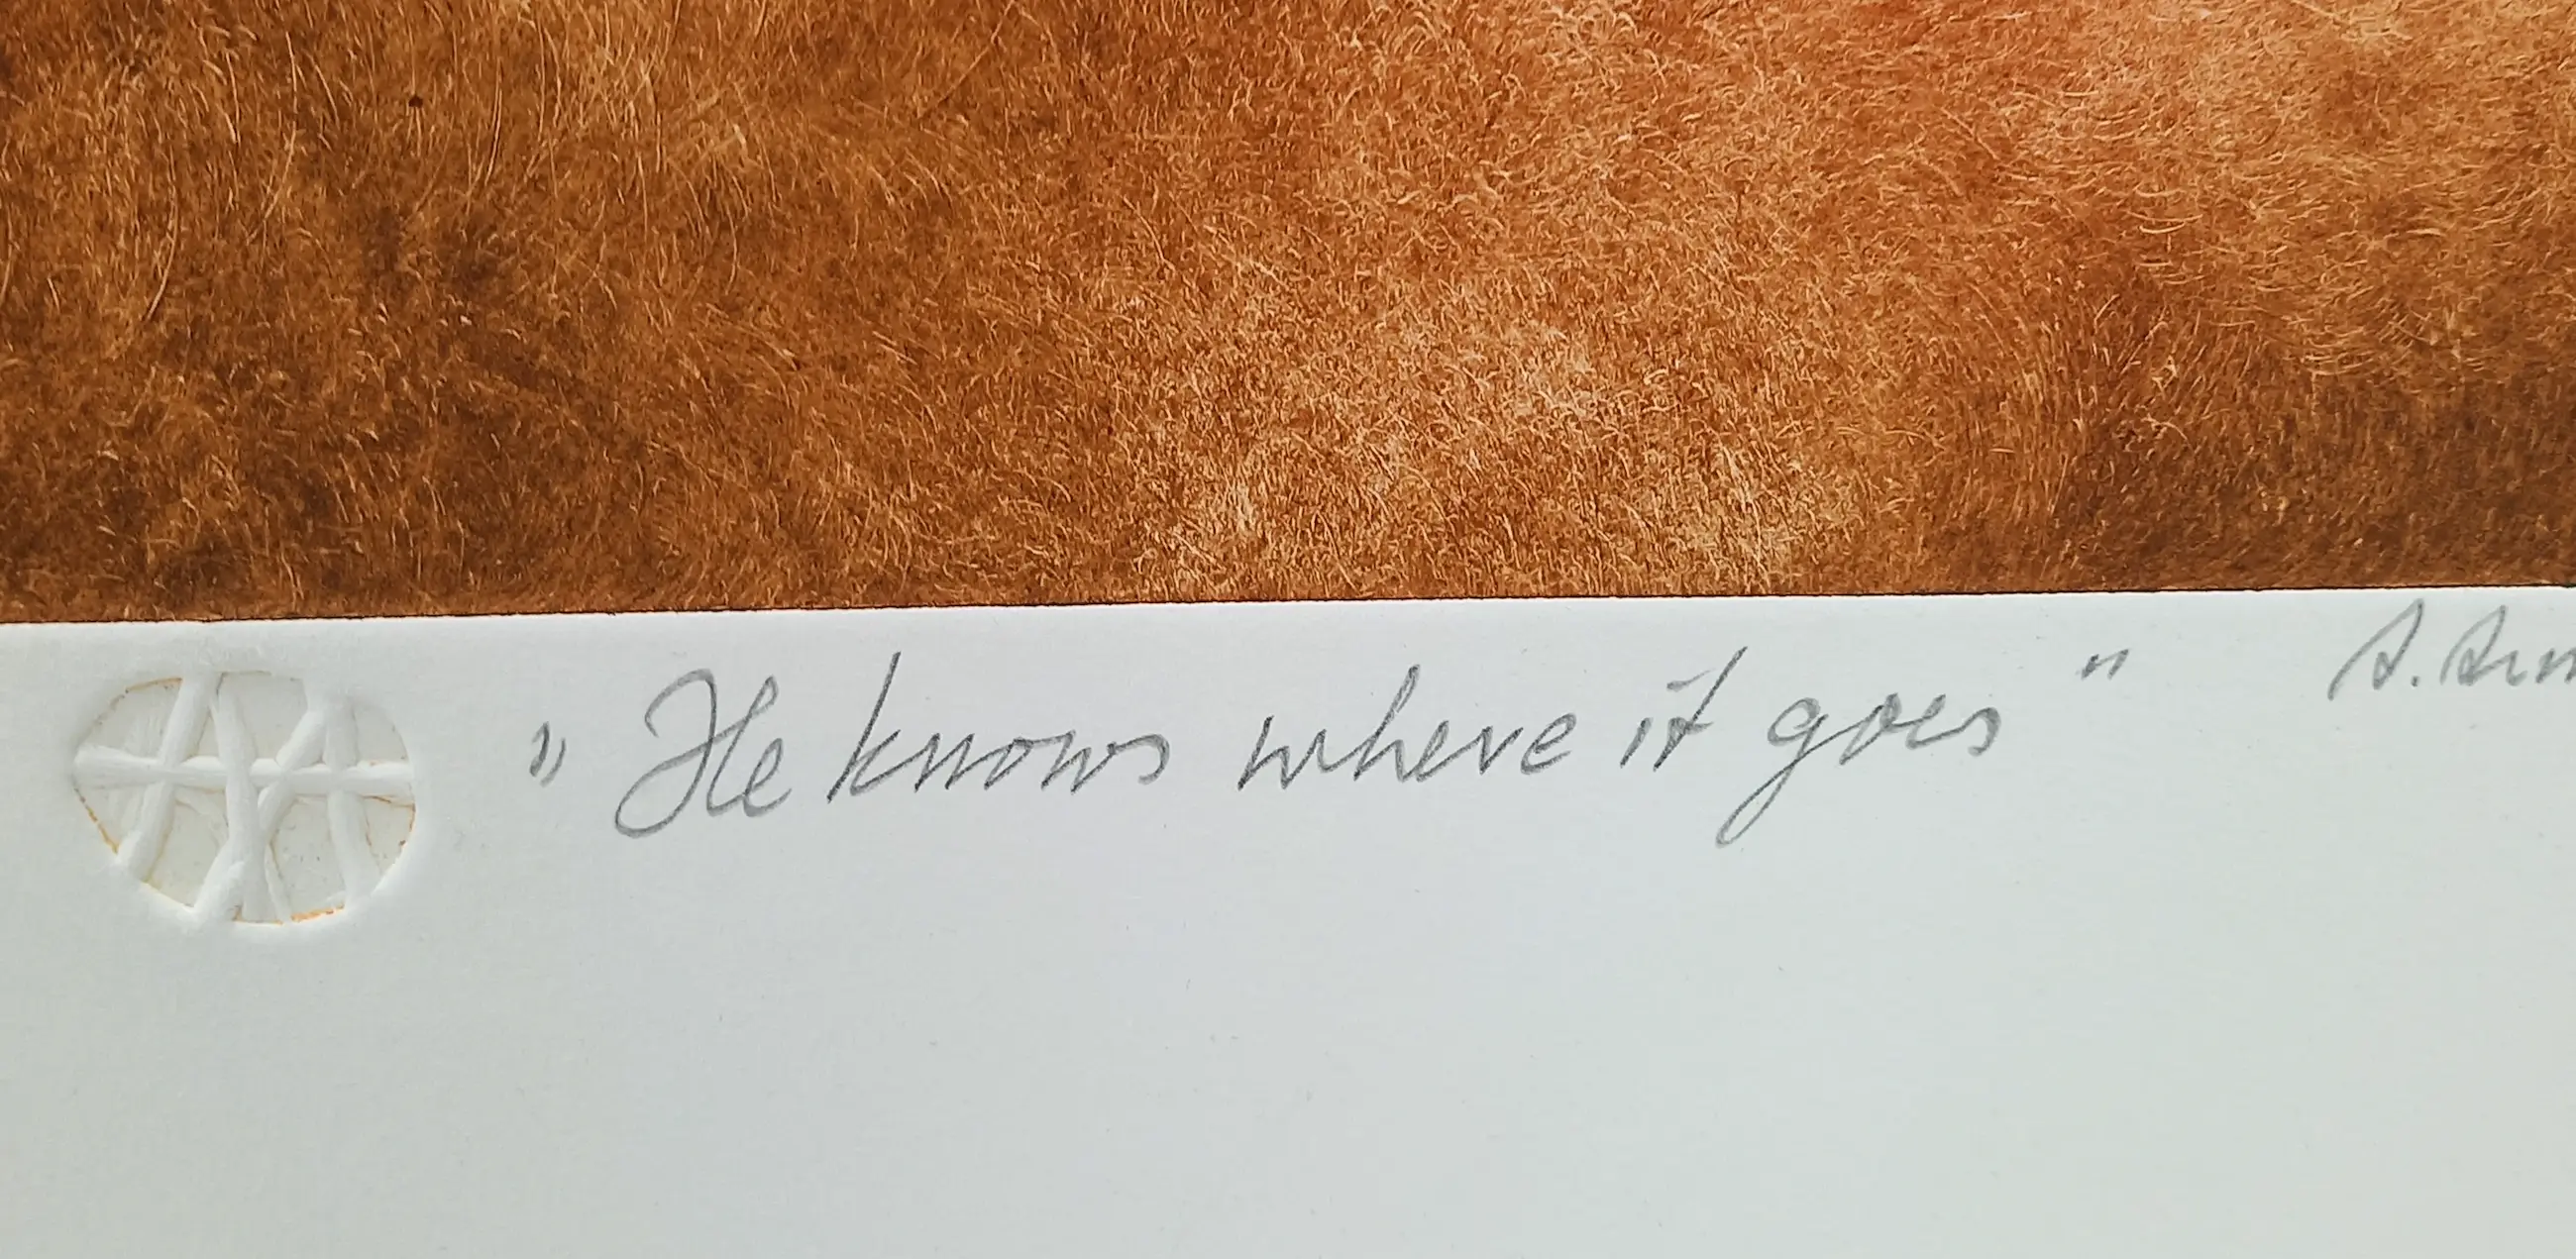 " He knows where it goes "